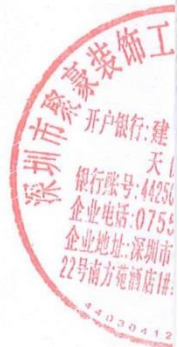 深圳市聚豪装饰工
开户银行:建
天
银行账号:4425
企业电话:0755
企业地址:深圳市
22号南方苑酒店1#
44030412